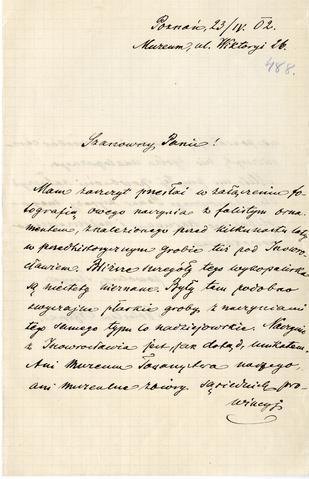 Poznań, 23/IV. 02.
Muzeum, ul. Wiktoryi 26.
488.
Szanowny Panie!
Mam zaszczyt przesłać w załączeniu fo-
tografią owego naczynia z falistym orna-
mentem, znalezionego przed kilkunastu laty
w przedhistorycznym grobie tuż pod Inowro-
cławiem. Bliższe szczegóły tego wykopaliska
są niestety nieznane. Były tam podobno
zwyczajne płaskie groby, z naczyniami
tego samego typu co nadziejowskie. Naczynie
z Inowrocławia jest, jak dotąd, unikatem.
Ani muzeum Towarzystwa naszego,
ani muzealne zbiory sąsiednich pro-
wincyj